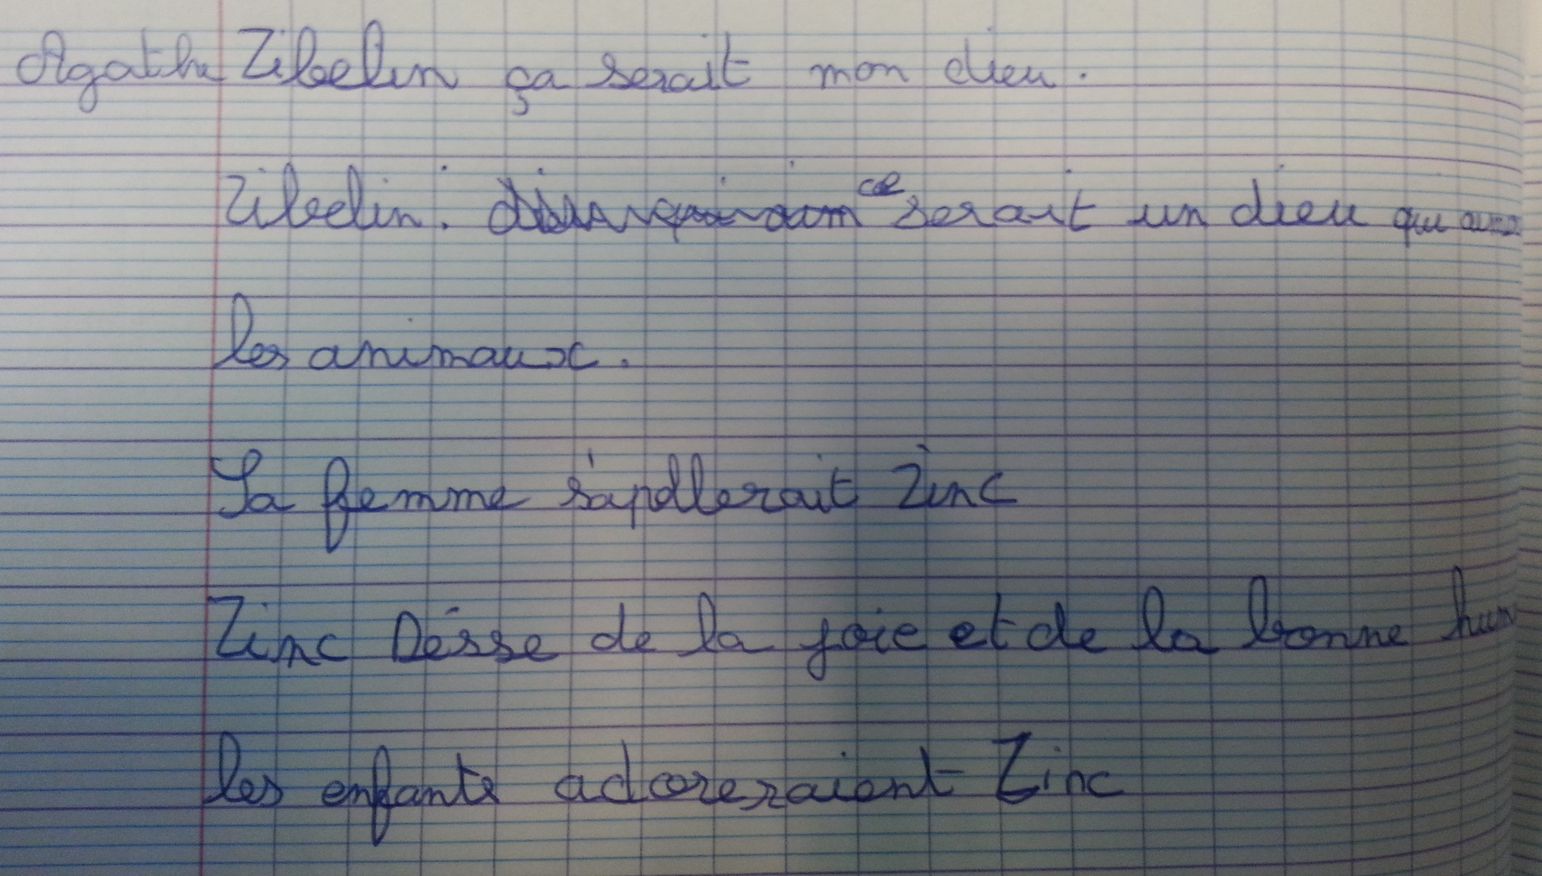 Agathe Zibelin ça serait mon dieu.
Zibelin. ce serait un dieu qui
les animaux.
Sa femme s'apellerait Zinc
Zinc Désse de la joie et de la bonne
les enfants adoreraient Zinc